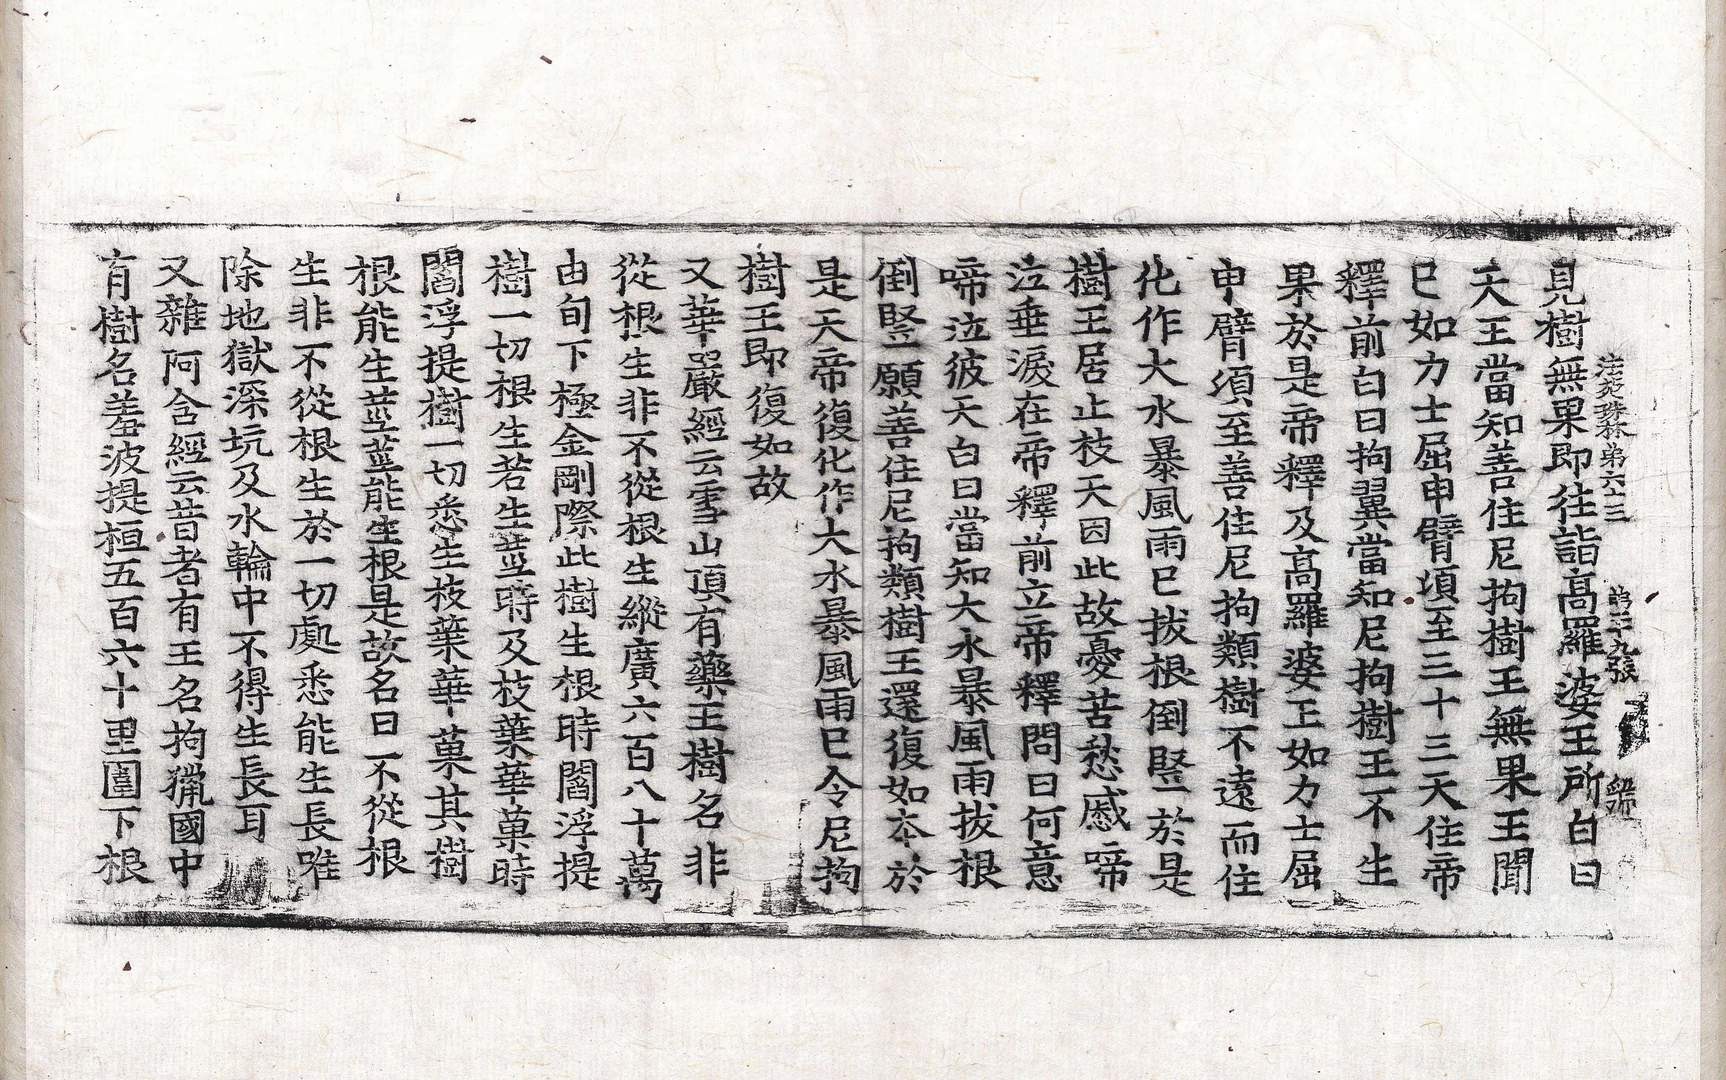 法苑珠林第六十三 第二十九張
見樹無果即往詣高羅婆王所白曰
天王當知善住尼拘樹王無果王聞
已如力士屈申臂頃至三十三天住帝
釋前白曰拘翼當知尼拘樹王不生
果於是帝釋及高羅婆王如力士屈
申臂須至善住尼拘類樹不遠而住
化作大水暴風雨已拔根倒竪於是
樹王居止枝天因此故憂苦愁慼啼
泣垂淚在帝釋前立帝釋問曰何意
啼泣彼天白曰當知大水暴風雨拔根
倒竪願善住尼拘類樹王還復如本於
是天帝復化作大水暴風雨已令尼拘
樹王即復如故
又華嚴經云雪山頂有藥王樹名非
從根生非不從根生縱廣六百八十萬
由旬下極金剛際此樹生根時閻浮提
樹一切根生若生莖時及枝葉華菓時
閻浮提樹一切悉生枝葉華菓其樹
根能生莖莖能生根是故名曰不從根
生非不從根生於一切處悉能生長唯
除地獄深坑及水輪中不得生長耳
又雜阿含經云昔者有王名拘獵國中
有樹名羞波提桓五百六十里圍下根